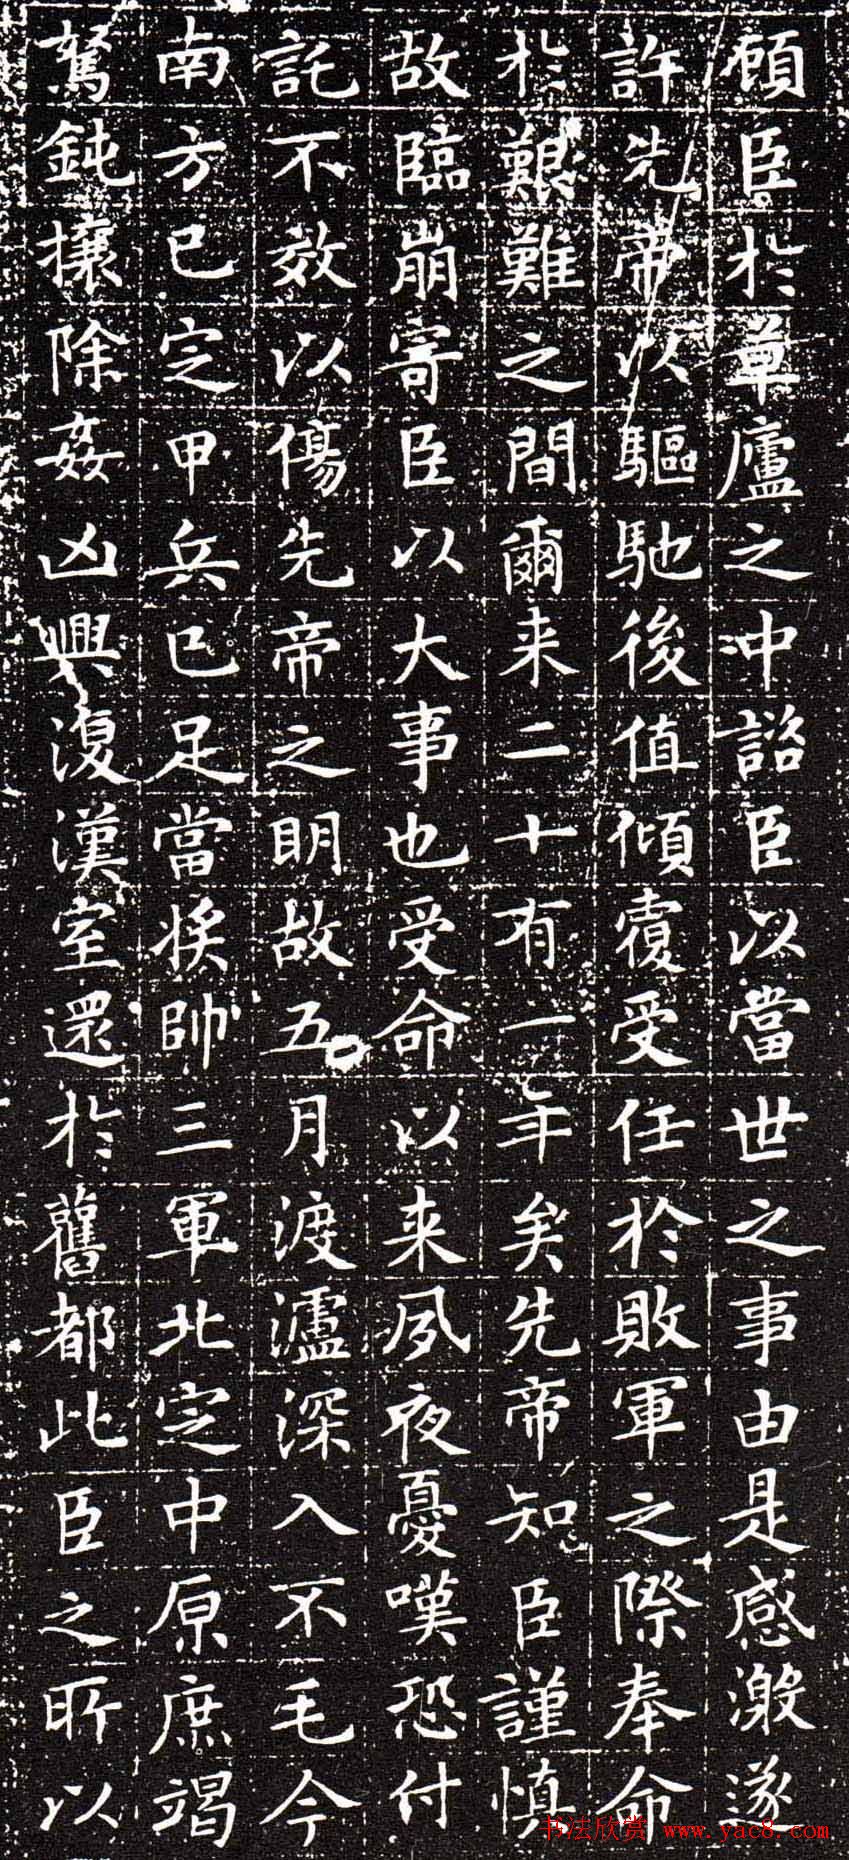 顧臣於草廬之冲諮臣以當世之事由是感激遂
許先帝以驅馳後值傾覆受任於敗軍之際奉命
於艱難之間爾来二十有一年矣先帝知臣謹慎
故臨崩寄臣以大事也受命以来夙夜憂嘆恐付
託不效以傷先帝之明故五月渡瀘深入不毛今
南方已定甲兵已足當将帥三軍北定中原庶竭
駑鈍攘除姦凶興復漢室還於舊都此臣之所以
书法欣赏 www.yac8.com